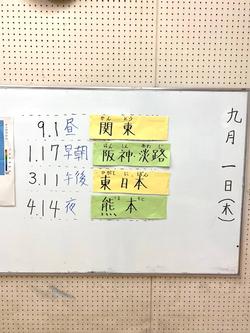 九月一日(木)
9.1 昼 関東
かんとう
1.17 早朝 阪神・淡路
はんしん あわじ
3.11 午後 東日本
ひがしにほん
4.14 夜 熊本
くまもと